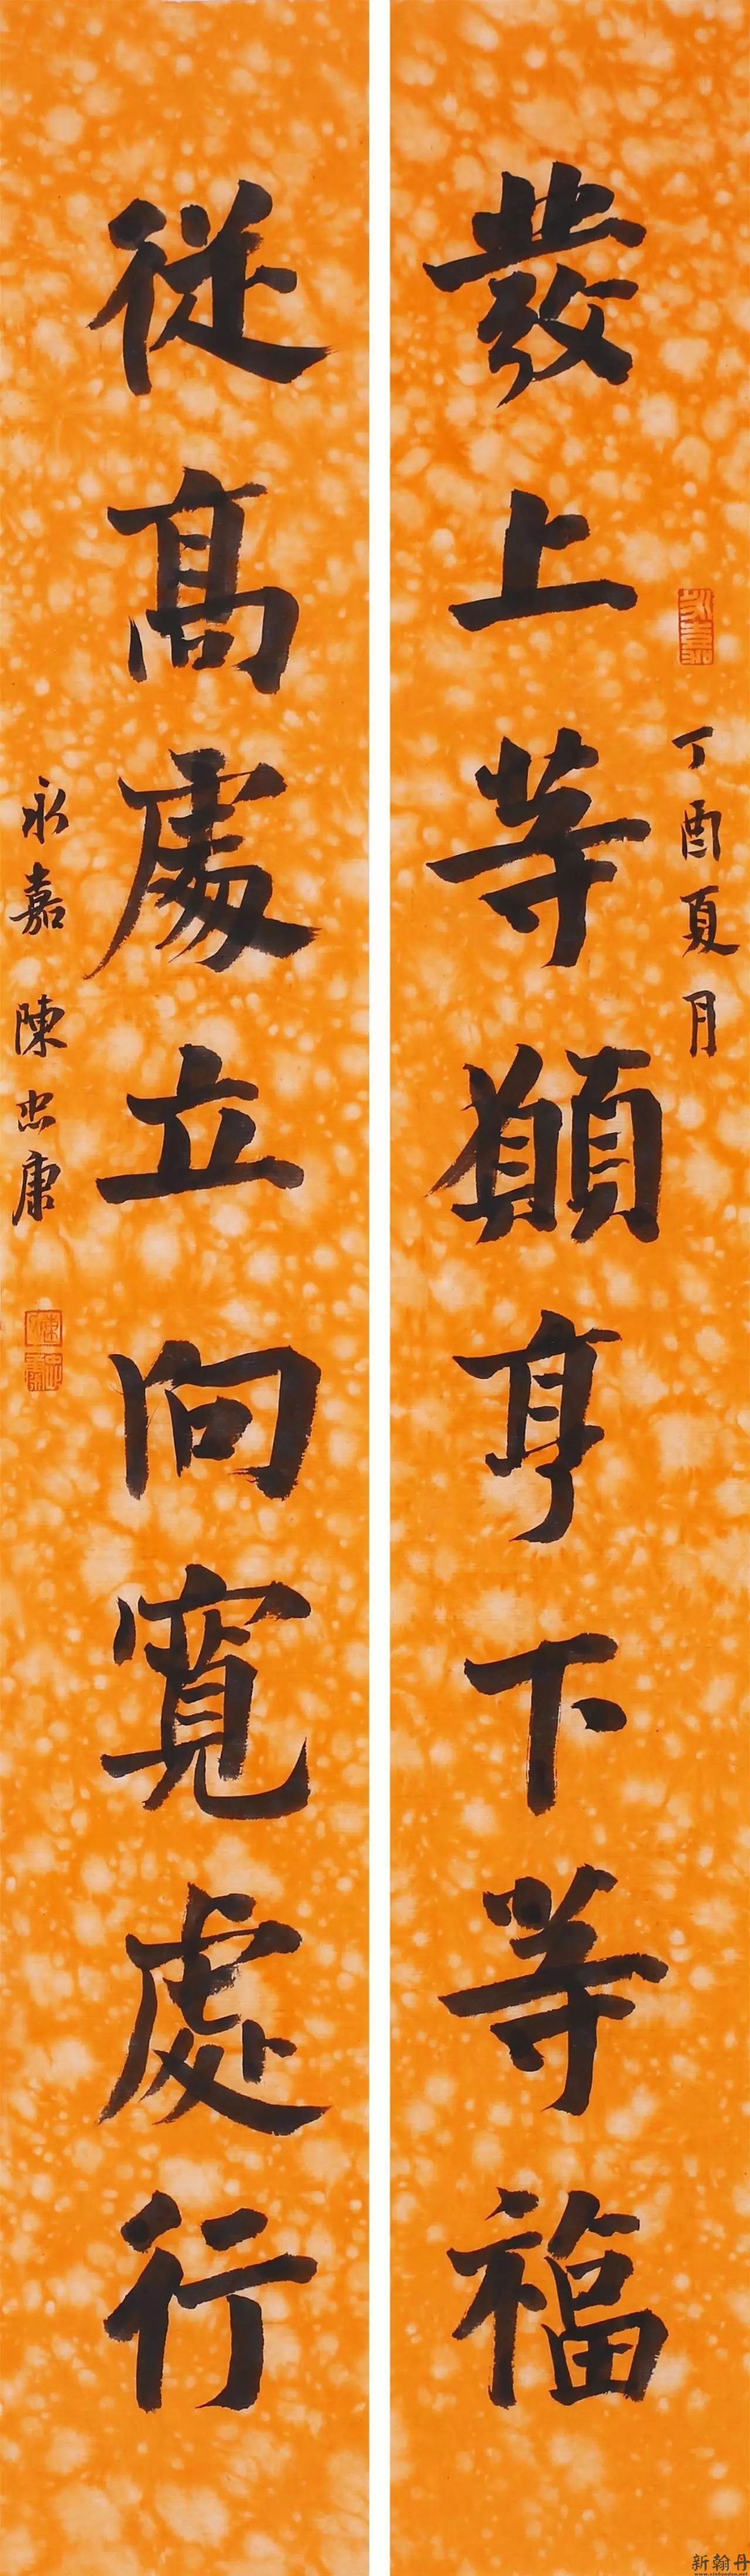 發上等願享下等福
丁酉夏月
從高處立向寬處行
永嘉 陳忠康
永嘉
新翰丹